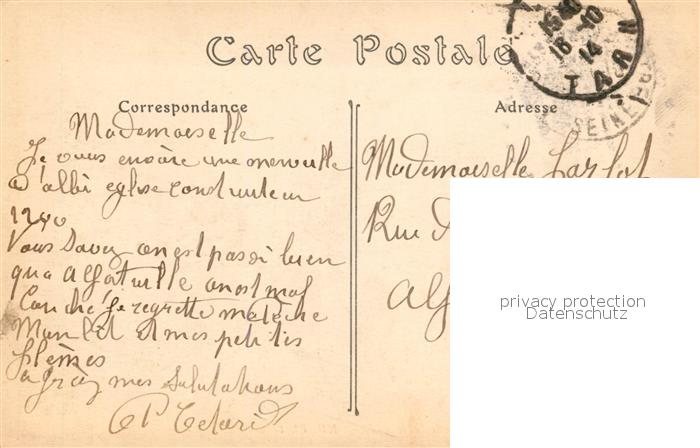 Carte Postale
15 40
16 -10
14
TARN
SEINE
Correspondance
Mademoiselle
Je vous envoire une merveille
d'albi eglise construiteur
1240
Vous Savez on est pas si bien
qua Alfortville on est mal
Couché, Je regrette ma
Mon Lit et mes petites
agréez mes Salutations
Adresse
Mademoiselle Carlot
Rue
Alf
privacy protection
Datenschutz